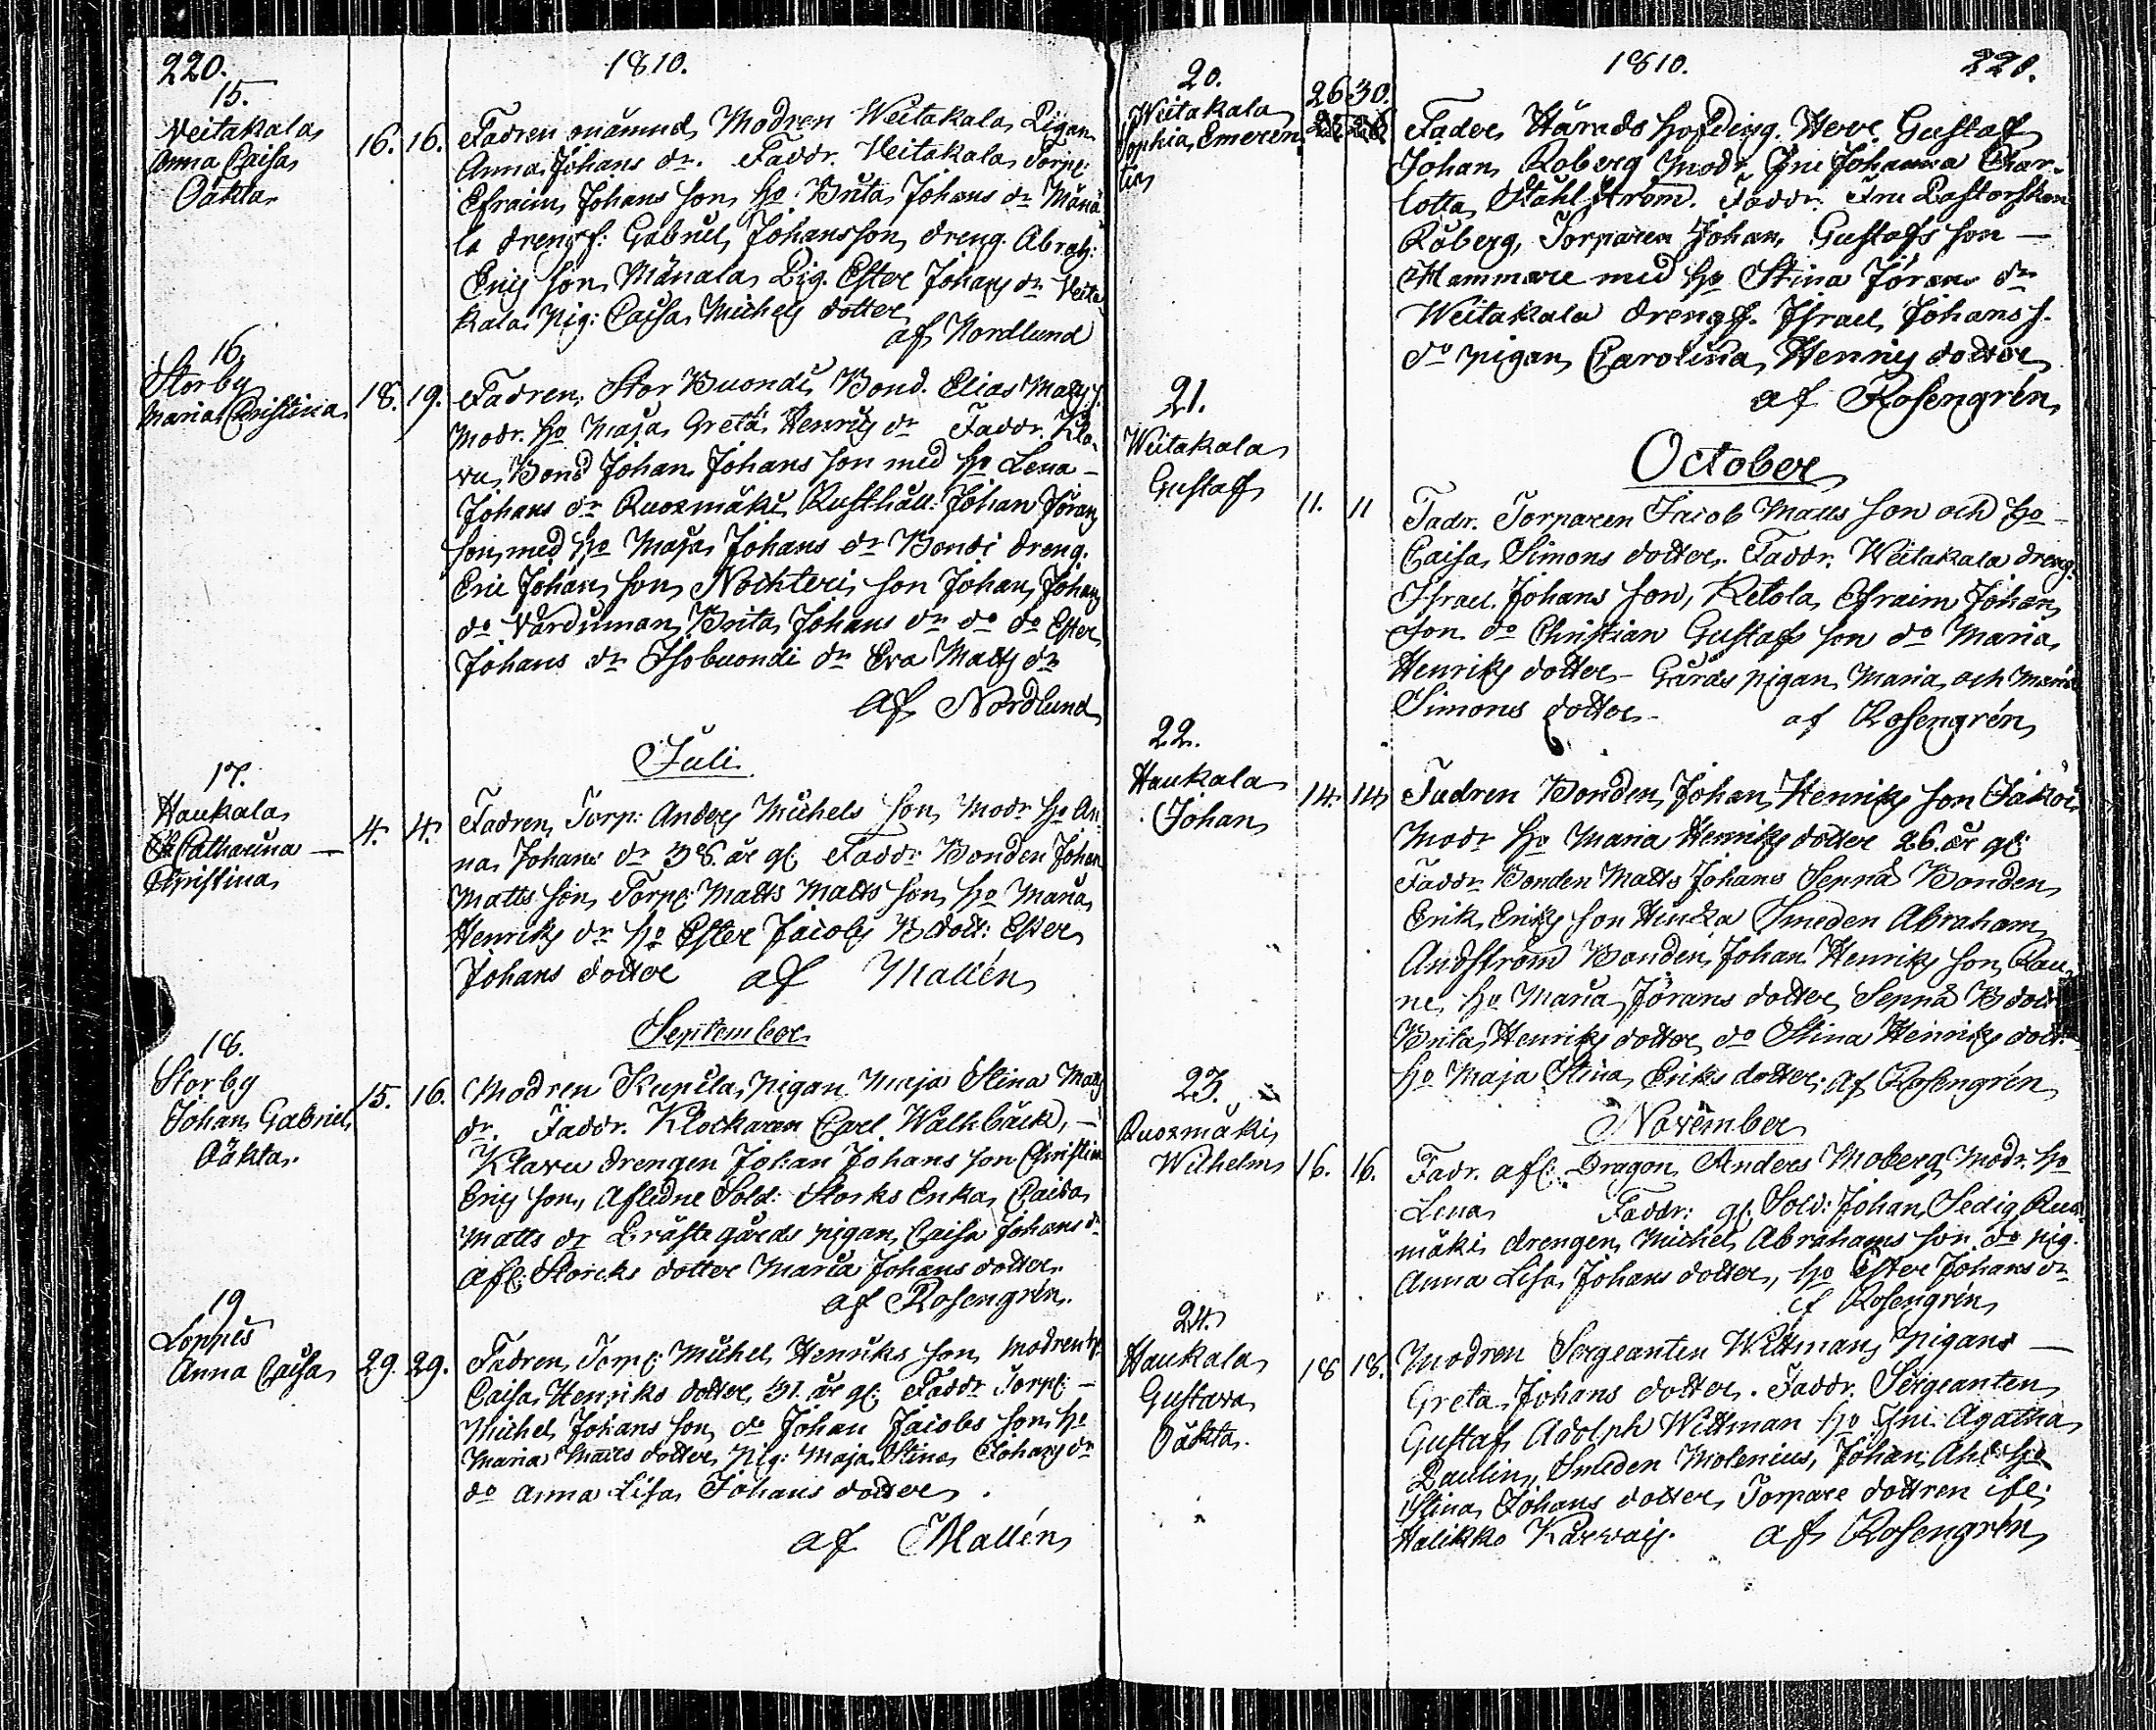 220.
1810.
15.
Veitakala
Anna Caisa
Oäkta.
16. 16.
Fadren onämnd, Modren Weitakala Pigan
Anna Johans dr. Faddr. Veitakala Torp:
Efraim Johans son, ho Brita Johans dr Mäna
la drengf: Gabriel Johansson, dreng. Abrah:
Erics son, Mänala Pig. Ester Johans dr Veita
kala pig: Caisa Michels dotter
af Nordlund
16.
Storby
Maria Christina
18. 19.
Fadren, Stor Buondi Bond. Elias Matts s.
Modr. ho Maja Greta Henrics dr Faddr. Kla
vu Bond Johan Johans son med ho Lena
Johans dr Ruozmäki Rusthåll: Johan Jörans
son, med ho Maja Johans dr Bondi dreng.
Eric Johans son, Nochteri son Johan Johans
do Vårduman Brita Johans dr do do Ester
Johans dr Isobuondi dr Eva Matts dr
af Nordlund
Juli.
17.
Haukala
Catharina
Christina
4. 4.
Fadren, Torp: Anders Michels son, Modr ho An
na Johans dr 38. år gl: Faddr Bonden Johan
Matts son, Torp: Matts Matts son, ho Maria
Henriks dr ho Ester Jacobs B dott: Ester
Johans dotter af Mallén
September
18.
Storby
Johan Gabriel
Oäkta.
15. 16.
Modren Kupila pigan Maja Stina Matts
dr. Faddr. Klockaren Carl Wallbäck,
Klavu drengen Johan Johans son Christian
Erics son, Aflidne Sold: Storks Enka Caisa
Matts dr Prästegårds pigan, Caisa Johans dr
Afl: Storcks dotter Maria Johans dotter.
af Rosengrén.
19
Loppis
Anna Caisa
29. 29.
Fadren, Torp: Michel Henriks son, modren ho
Caisa Henriks dotter, 31. år gl: Faddr Torp:
Michel Johans son, do Johan Jacobs son, ho
Maria Matts dotter, Pig: Maja Stina Johans dr
do Anna Lisa Johans dotter.
af Mallén
1810.
221.
20.
Weitakala
Sophia Emeren
tia
26 30.
Fader Härads höfding. Herr Gustaf
Johan Roberg modr Fru Johanna Char-
lotta Stahlström. Faddr. Fru Pastorskan
Roberg, Torparen Johan Gustafs son
Hammare med ho Stina Jörans dr
Weitakala drengf. Israel Johans s.
do pigan, Carolina Henrics dotter
af Rosengrén
October
21.
Weitakala
Gustaf
11. 11
Fadr. Torparen Jacob Matts son och ho
Caisa Simons dotter. Faddr. Weitakala dreng.
Israel Johans son, Ketola Efraim Johans
son do Christian Gustafs son do Maria
Henriks dotter - Gårds pigan Maria och Maria
Simons dotter - af Rosengrén
22.
Haukala
Johan
14. 14
Fadren Bonden Johan Henriks son
Modr ho Maria Henriks dotter 26. år gl:
Faddr Bonden Matts Johans Seppä Bonden
Erik Eriks son Smeden Abraham
Andström Bonden Johan Henriks son
ne, ho Maria Jörans dotter Seppä B dott
Brita Henriks dotter do Stina Henriks dott:
ho Maja Stina Eriks dotter. af Rosengrén
November
23.
Ruozmäki
Wilhelm
16. 16.
Fadr. afl: Dragon Anders Moberg Modr. ho
Lena Faddr: gl. Sold: Johan Sedig Ruoz
mäki drengen Michel Abrahams son do pig.
Anna Lisa Johans dotter, ho Ester Johans dr
af Rosengrén
24.
Haukala
Gustava
Oäkta.
18 18.
Modren Sergeanten Wittmans pigans
Greta Johans dotter. Faddr. Sergeanten
Gustaf Adolph Wittman ho Fru Agatha
Paulin, Smeden Molenius, Johan Ahl: ho
Stina Johans dotter, Torpare dottren
Halikko Karvais. af Rosengrén